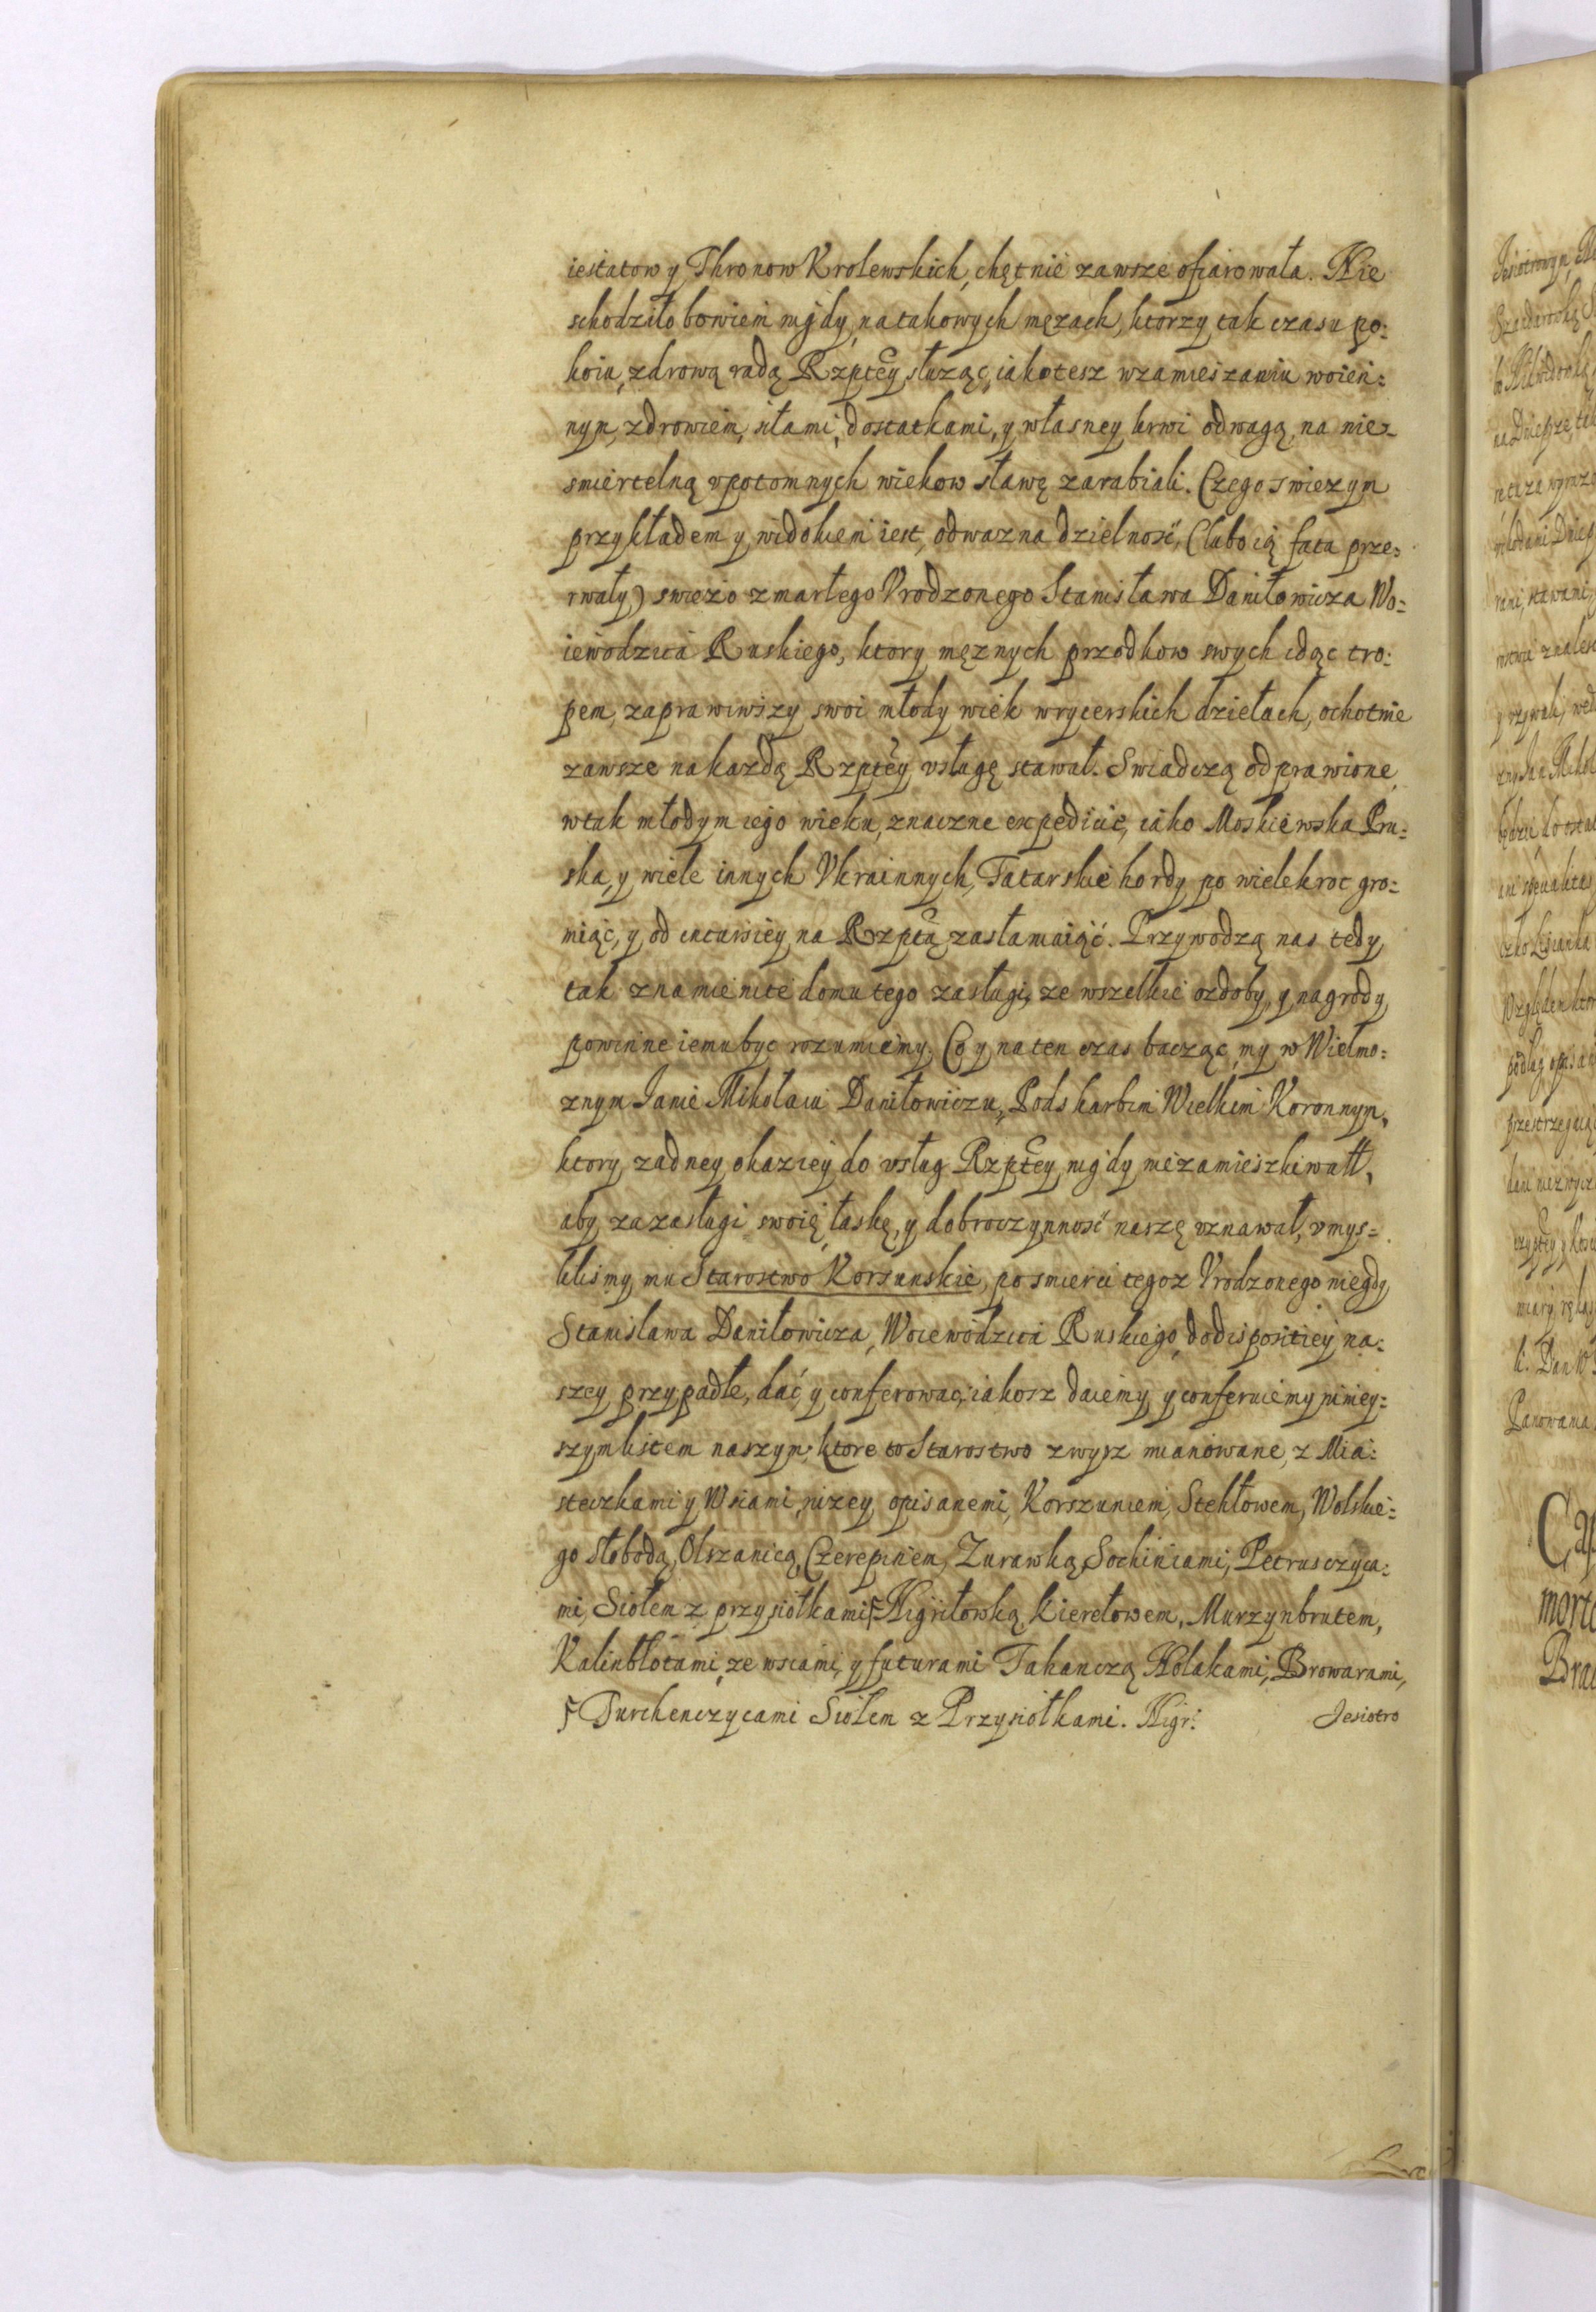 iestatow y Thronow Krolewskich, chętnie zawsze ofiarowała. Nie
schodziło bowiem nigdy, na takowych mężach, ktorzy tak czasu po:
koiu, zdrową radą Rzptey służąc, iako tesz wzamieszaniu woien:
nym, zdrowiem, siłami, dostatkami, y własney krwi odwagą, na nie:
smiertelną vpotomnych wiekow sławę zarabiali. Czego swieżym
przykładem y widokiem iest, odwazna dzielność, (lubo ią fata prze:
rwały) swieżo zmarłego Vrodzonego Stanisława Daniłowicza Wo:
iewodzica Ruskiego, ktory mężnych przodkow swych idąc tro:
pem, zaprawiwszy swoi młody wiek wrycerskich dziełach, ochotnie
zawsze na kazdą Rzptey vsługę stawał. Swiadczą odprawione
wtak młodym iego wieku, znaczne expedicie, iako Moskiewska Pru:
ska, y wiele innych Vkrainnych, Tatarskie hordy po wielekroc gro:
miąc, y od incursiey na Rzptą zasłaniaiąć. Przywodzą nas tedy
tak znamienite domu tego zasługi, ze wszelkie ozdoby, y nagrody
powinne iemu byc rozumiemy. Co y na ten czas bacząc my w Wielmo:
znym Janie Mikołaiu Daniłowiczu, Podskarbim Wielkim Koronnym,
ktory zadney okaziey do vsług Rzptey nigdy niezamieszkiwałł,
aby za zasługi swoię łaskę, y dobroczynność naszę vznawał, vmys:
liliśmy mu Starostwo Korsunskie, po smierci tegoz Vrodzonego niegdy
Stanisława Daniłowicza, Woiewodzica Ruskiego, do dispositiey na:
szey przypadłe, dać y conferowac, iakosz daiemy y conferuiemy niniey:
szym listem naszym. ktore to Starostwo zwysz mianowane, z Mia:
steczkami y Wsiami nizey opisanemi, Korszuniem, Stebłowem, Wolskie:
go słobodą, Olszanicą, Czerepinem, Zurawką, Sochiniami, Petrusczyca:
mi, Siołem z przysiołkami Nigriłowką, Kierełowem, Murzynbrutem,
Kalinbłotami, ze wsiami, y futurami Tahanczą, Holakami, Browarami,
Turchenczycami Siołem z Przysiołkami. Nigr:
Jesiotro